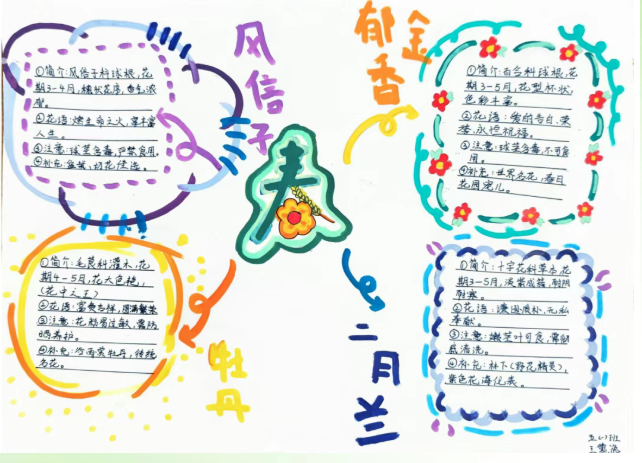 风信子
①简介:风信子科球根,花
期3-4月,穗状花序,香气浓
郁。
②花语:燃生命之火,享丰富
人生。
③注意:球茎有毒,严禁食用。
④补充:盆栽、切花佳选。
郁金香
①简介:百合科球根,花
期3-5月,花型杯状,
色彩丰富。
②花语:爱的告白,荣
誉,永恒祝福。
③注意:球茎有毒,不可食
用。
④补充:世界名花,春日
花园宠儿。
春
①简介:毛茛科灌木,花
期4-5月,花大色艳,
(花中之王)
②花语:富贵吉祥,圆满繁荣
③注意:花粉易过敏,需防
晒养护。
④补充:河南菏牡丹,传统
名花。
牡丹
二月兰
①简介:十字花科草本,花
期3-5月,淡紫成簇,耐阴
耐寒。
②花语:谦逊质朴,无私
奉献。
③注意:嫩茎叶可食,需彻
底清洗。
④补充:林下(野花精灵),
紫色花海代表。
五(1)班